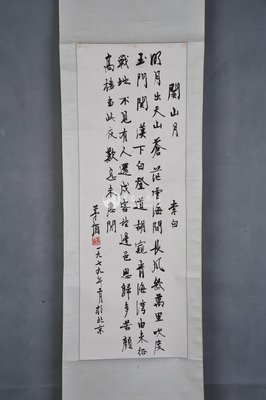 關山月
李白
明月出天山蒼茫雲海間長風幾萬里吹度
玉門關漢下白登道胡窺青海灣由來征
戰地不見有人還戍客望邊色思歸多苦顏
高樓當此夜歎息未應閒
茅盾
一九七九年 月於北京